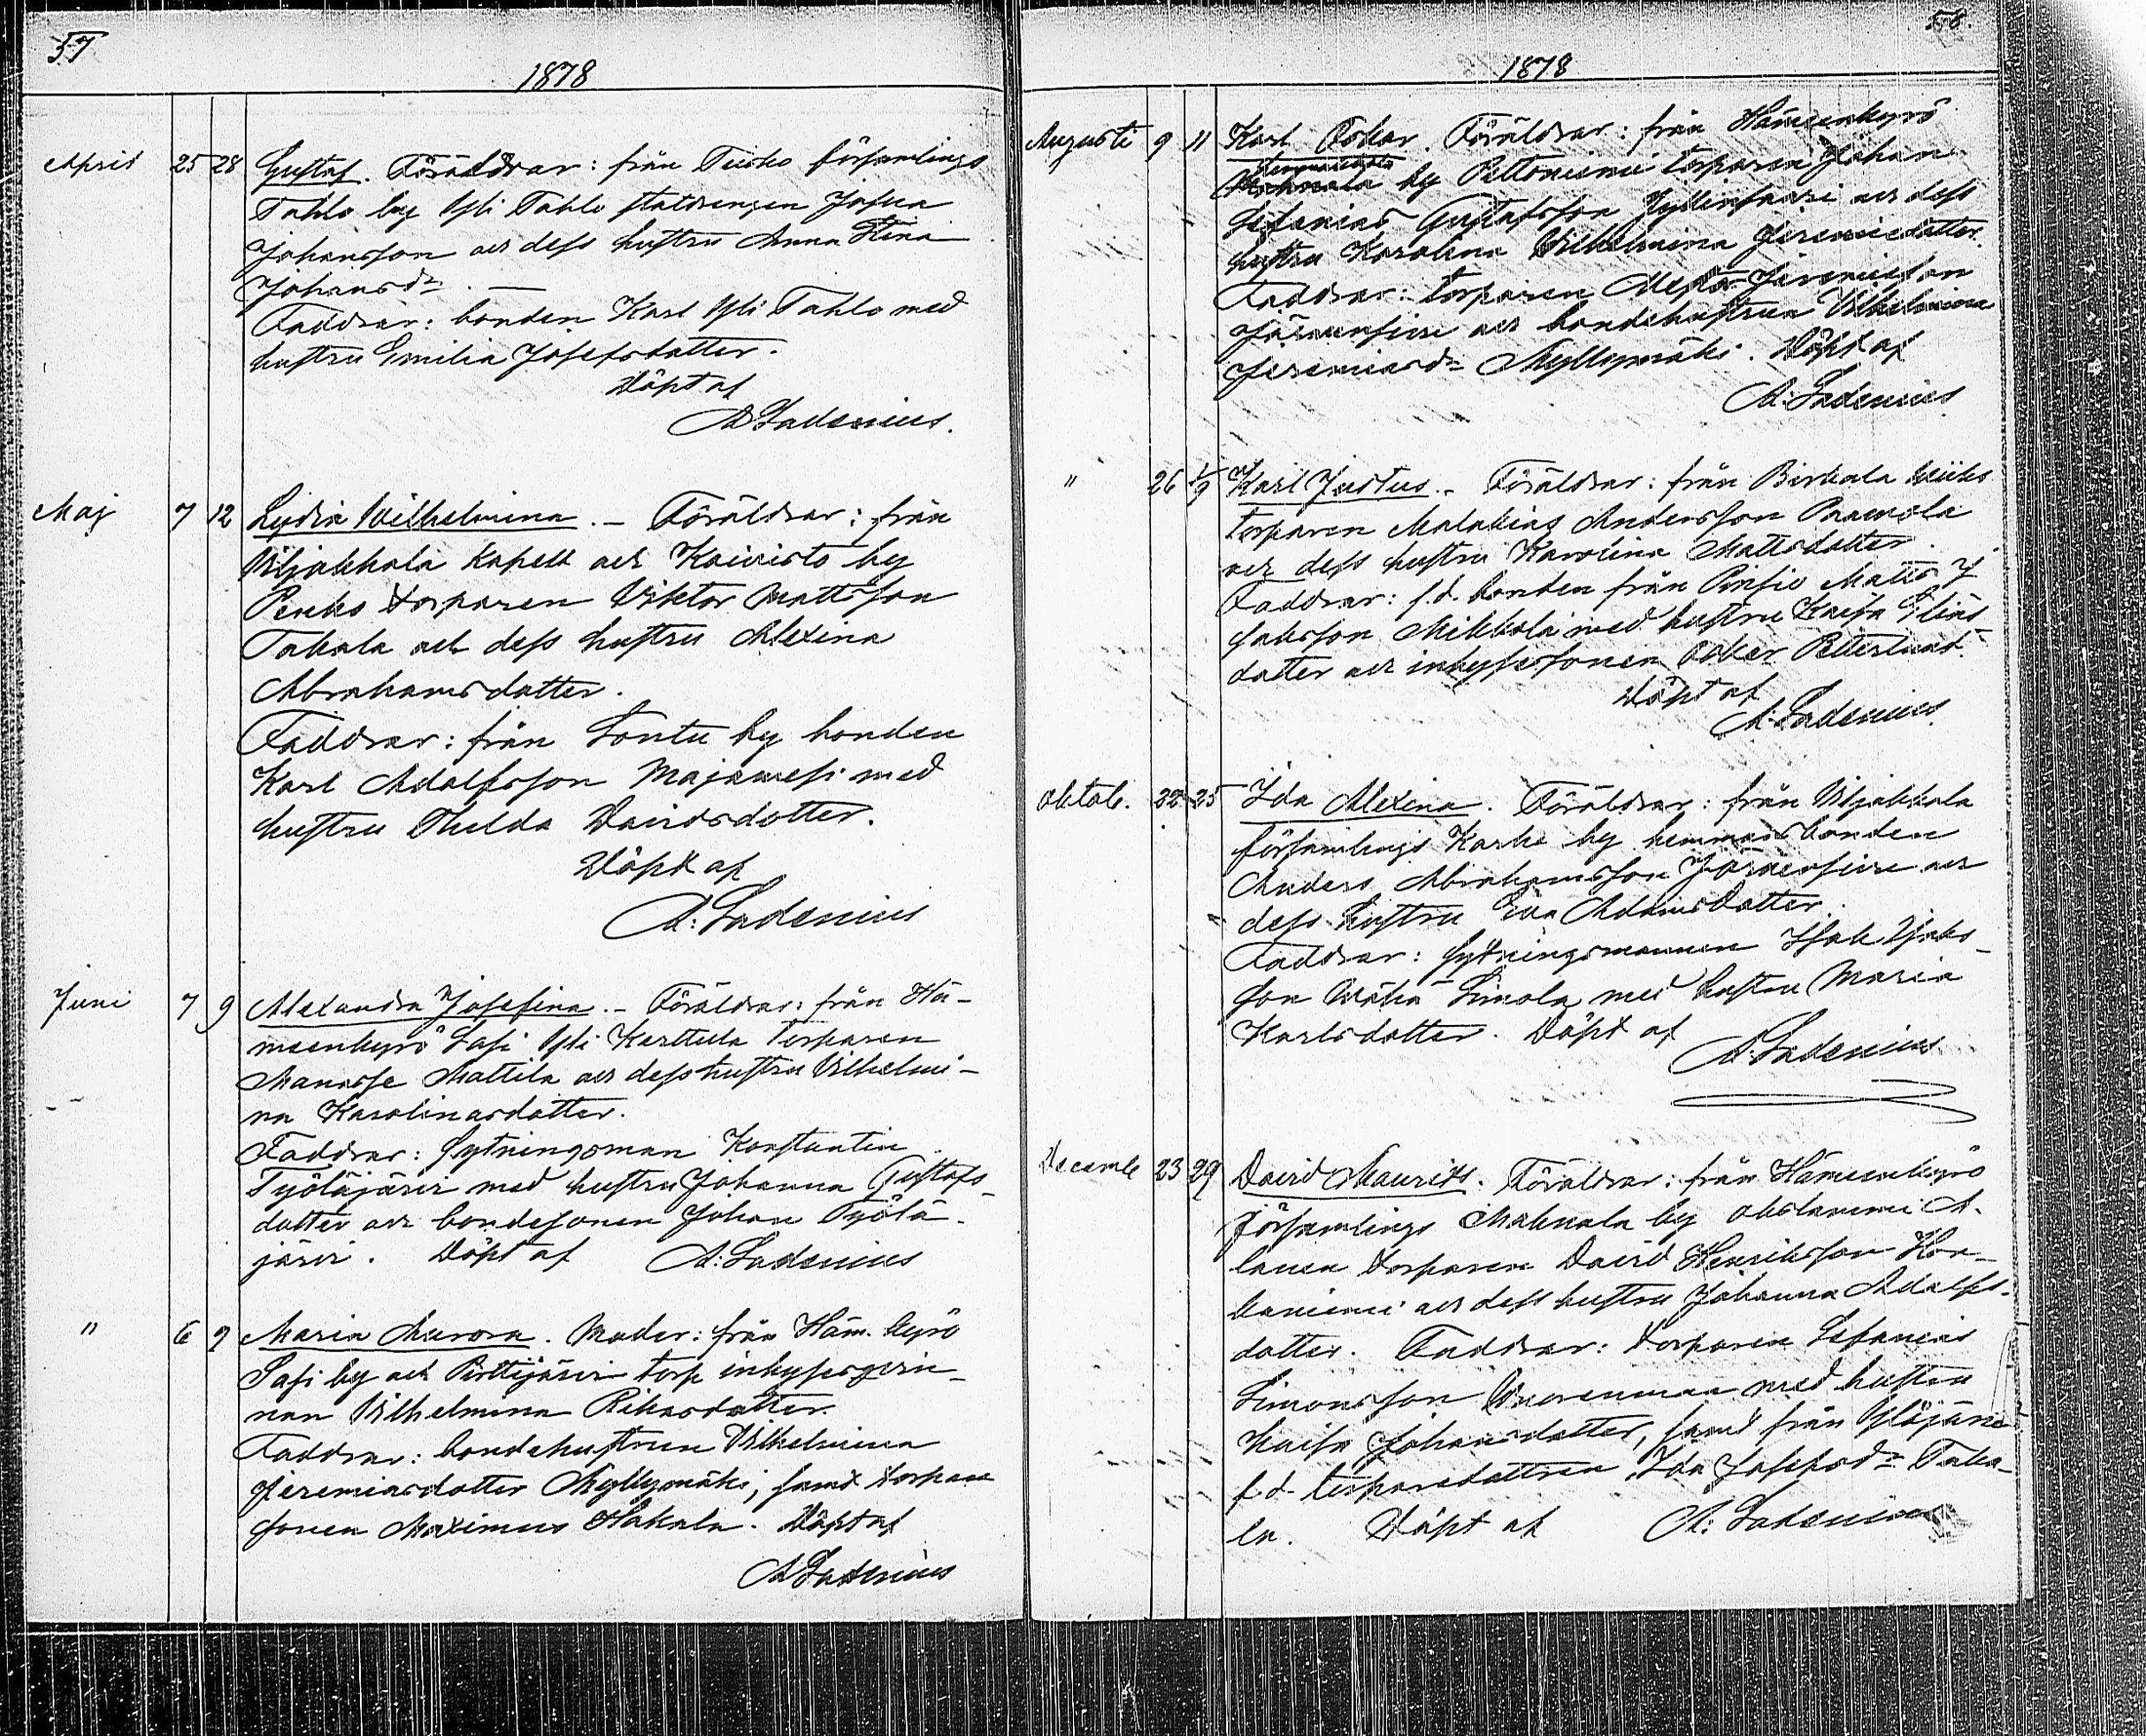 57
1878
April 25 28 Gustaf. Föräldrar: från Teisko församlings
Tahlo by Yli Tahlo statdrengen Josua
Johansson och dess hustru Anna Stina
Johansdr. —
Faddrar: bonden Karl Yli Tahlo med
hustru Emilia Josefsdotter.
Döpt af
A. Ladenius.
Maj 7 12 Lydia Wilhelmina. — Föräldrar: från
Viljakkala kapell och Koivisto by
Penko torparen Viktor Mattsson
Takala och dess hustru Alexina
Abrahamsdotter.
Faddrar: från Sontu by bonden
Karl Adolfsson Majamesi med
hustru Thilda Davidsdotter.
Döpt af
A: Ladenius
Juni 7 9 Alexandra Josefina. — Föräldrar: från Ha-
meenkyrö Sasi Yli Kerttula torparen
Manasse Mattila och dess hustru Vilhelmi-
na Karolinasdotter.
Faddrar: Sytningsman Konstantin
Työläjärvi med hustru Johanna Gustafs-
dotter och bondesonen Johan Työlä-
järvi. Döpt af A: Ladenius
" 6 9 Maria Aurora. Moder: från Ham. kyrö
Sasi by och Pirttijärvi torp inhysesqvin-
nan Vilhelmina Rikasdotter.
Faddrar: bondehustrun Vilhelmina
Jeremiasdotter Myllymäki, samt torpare
sonen Maximus Hakala. Döpt af
A Ladenius
58.
1878
Augusti 9 11 Karl Oskar. Föräldrar: från Hämeenkyrö
by Pettoniemi torparen Johan
Sefanias Gustafsson Hyllinsaari och dess
hustru Karolina Vilhelmina Jeremiedotter.
Faddrar: torparen Jeremiesson
Järvensivu och bondehustrun Vilhelmina
Jeremiasdr Myllymäki. Döpt af
A: Ladenius
" 26 1/9 Karl Justus. — Föräldrar: från Birkala Wiiks
torparen Malakias Andersson Paavola
och dess hustru Karolina Mattsdotter.
Faddrar: f.d. bonden från Pinsiö Matts J
Jaksson Mikkola med hustru Kaisa Elias
dotter och inhysessonen Oskar Petterlund.
Döpt af
A: Ladenius.
Oktob. 22 25 Ida Alexina. Föräldrar: från Viljakkala
församlings Karhe by hemmansbonden
Anders Abrahamsson Järvensivu och
dess hustru Eva Adamsdotter.
Faddrar: Sytningsmannen Isak Isaks-
son Wähä Simola med hustru Maria
Karlsdotter. Döpt af
A: Ladenius
Decembe 23 29 David Maurits. Föräldrar: från Hämeenkyrö
församlings Mahnala by A-
lanen torparen David Henriksson Kor-
kaniemi och dess hustru Johanna Adolfs-
dotter. Faddrar: torparen Sefanias
Simonsson Vuorenmaa med hustru
Kaisa Johansdotter, samt från Ylöjärvi
f.d. torparedottren Ida Josefsdr Taka-
la. Döpt af A: Ladenius